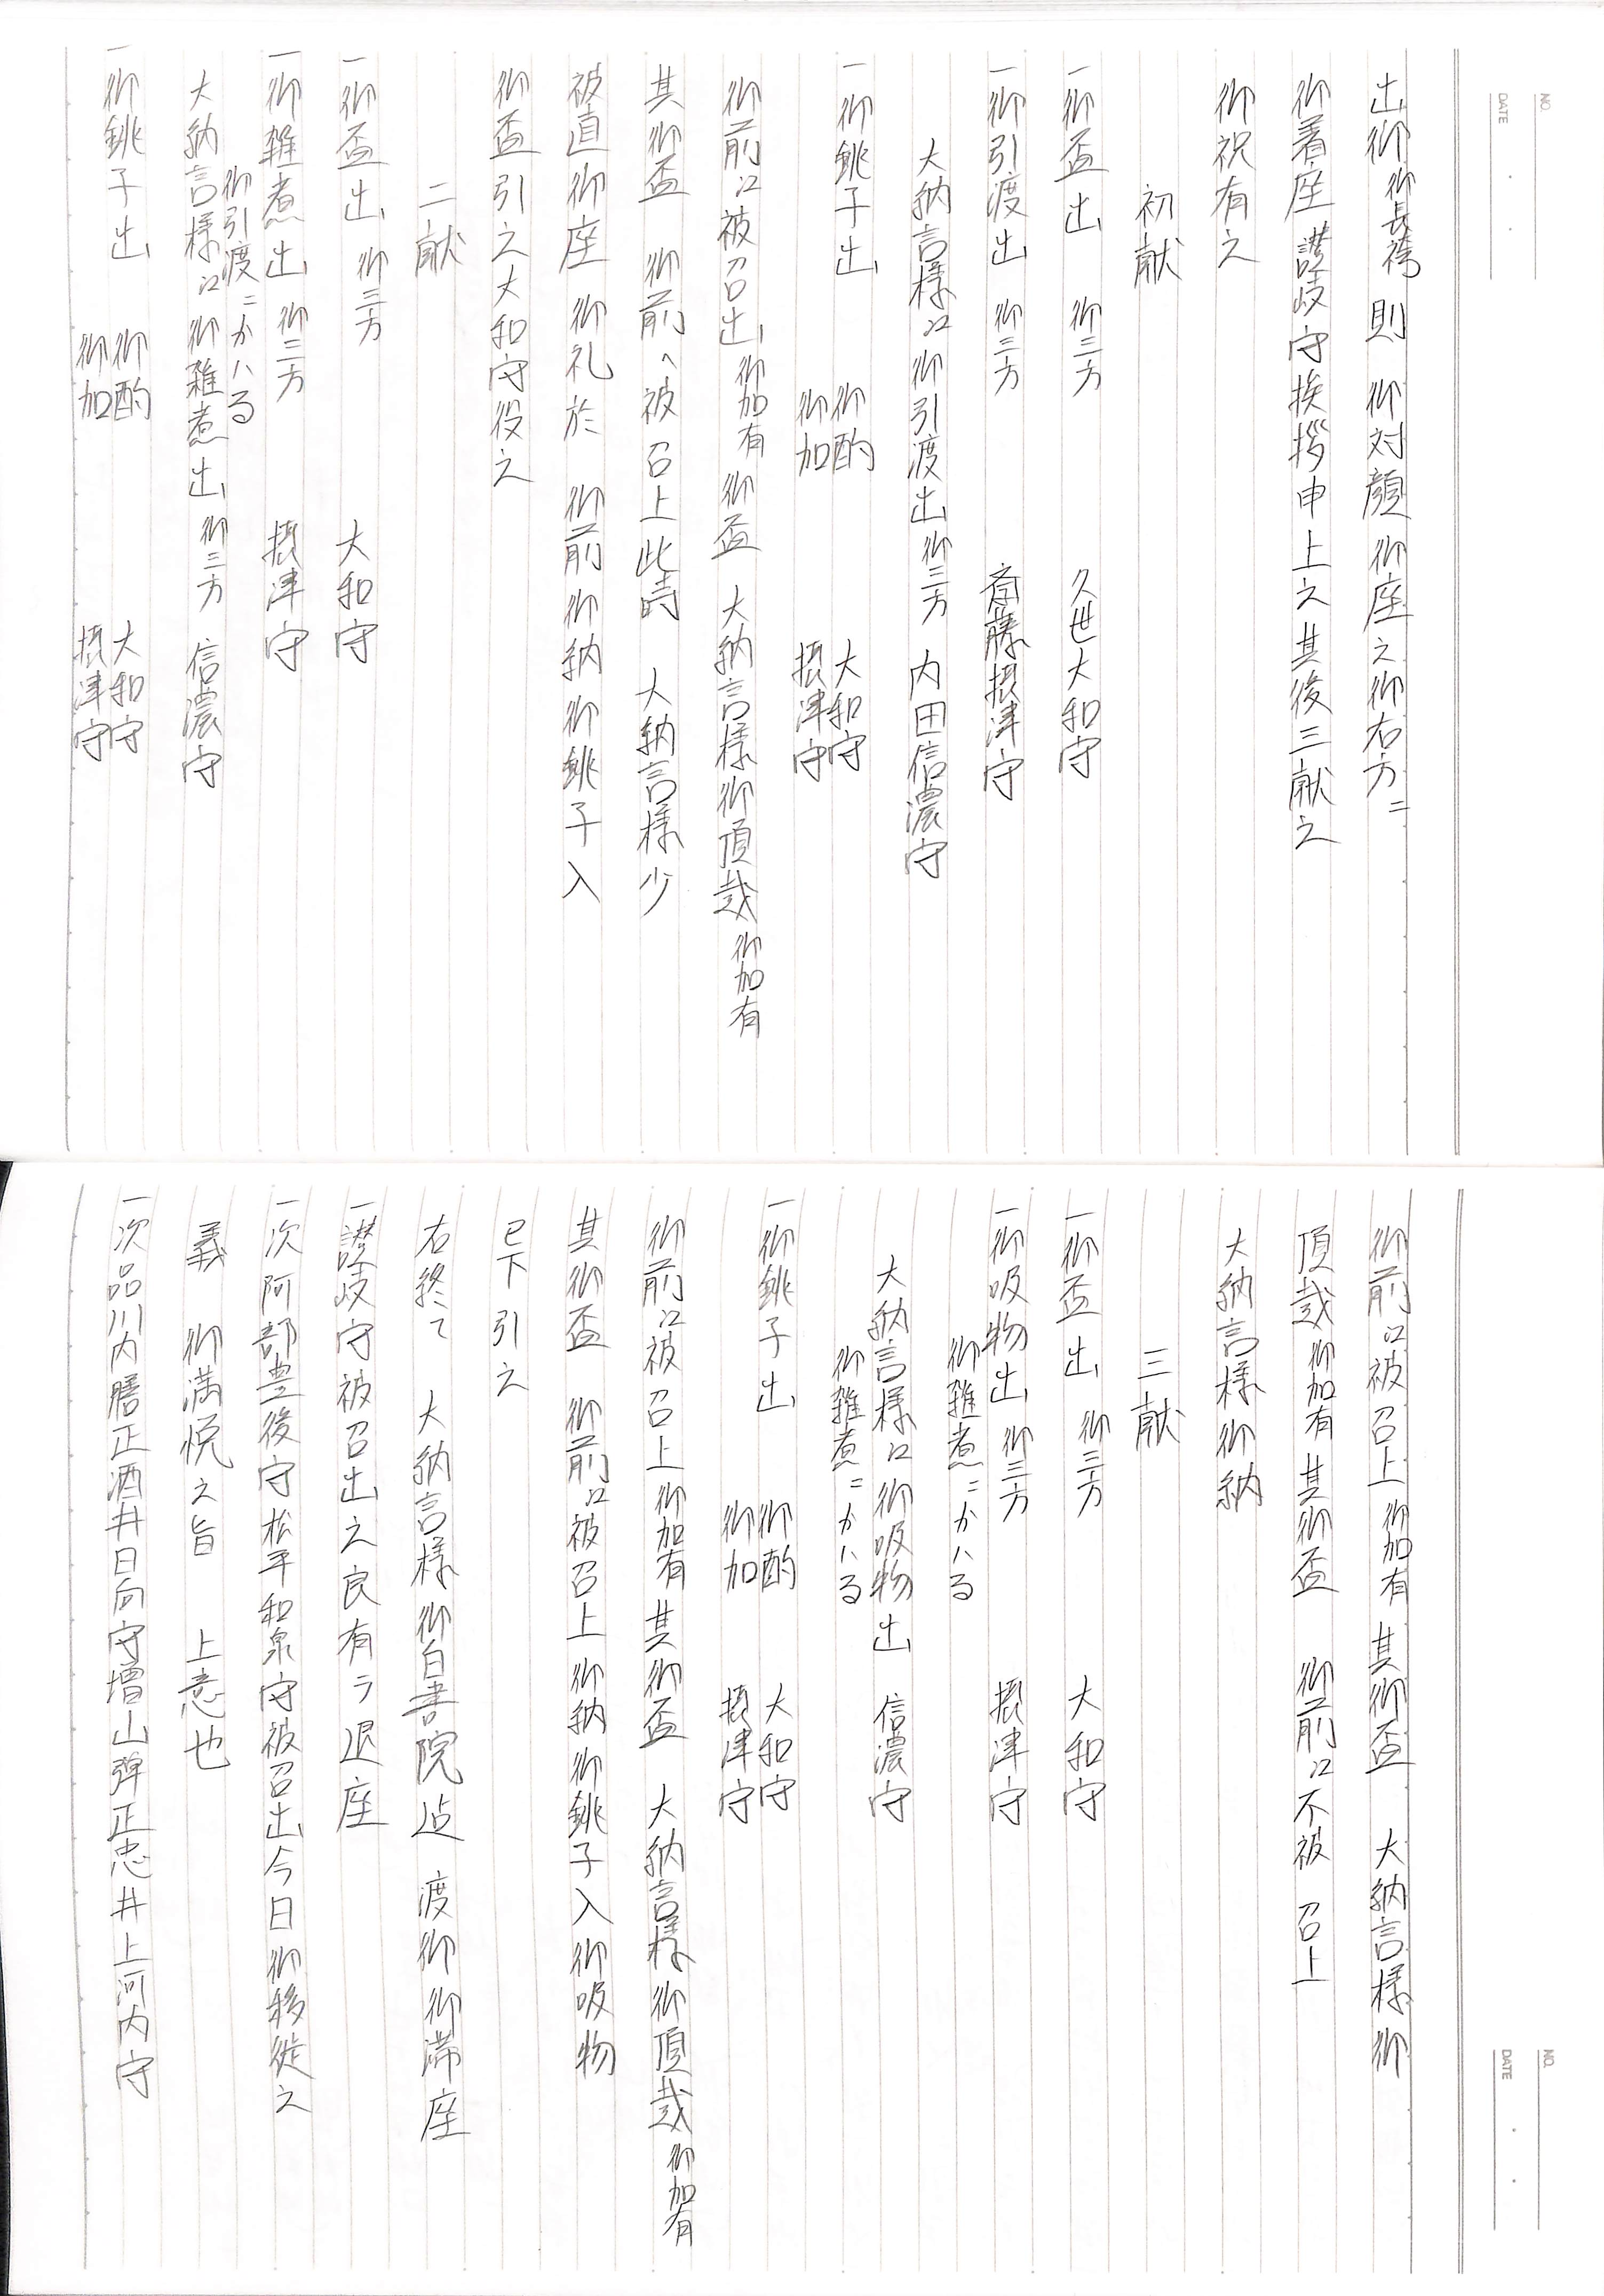 NO.
DATE
出御御長袴 則 御対顔 御座之御右方ニ
御着座 讃岐守挨拶申上之其後三献之
御祝有之
初献
一御盃出 御三方 久世大和守
一御引渡出 御三方 斎藤摂津守
大納言様江御引渡出御三方 内田信濃守
一御銚子出 御酌 大和守
御加 摂津守
御前江被召出御加有御盃 大納言様御頂戴御加有
其御盃 御前へ被召上此時 大納言様少
被直御座 御礼於 御前御納御銚子入
御盃引之大和守役之
二献
一御盃出 御三方 大和守
一御雑煮出 御三方 摂津守
御引渡ニかハる
大納言様江御雑煮出御三方 信濃守
一御銚子出 御酌 大和守
御加 摂津守
NO.
DATE
御前江被召上御加有其御盃 大納言様御
頂戴御加有其御盃 御前江不被 召上
大納言様御納
三献
一御盃出 御三方 大和守
一御吸物出御三方 摂津守
御雑煮ニかハる
大納言様江御吸物出 信濃守
御雑煮ニかハる
一御銚子出 御酌 大和守
御加 摂津守
御前江被召上御加有其御盃 大納言様御頂戴御加有
其御盃 御前江被召上御納御銚子入御吸物
已下引之
右終て 大納言様御白書院迠 渡御御滞座
一讃岐守被召出之良有テ退座
一次阿部豊後守松平和泉守被召出今日御移徙之
義 御満悦之旨 上意也
一次品川内膳正酒井日向守増山弾正忠井上河内守